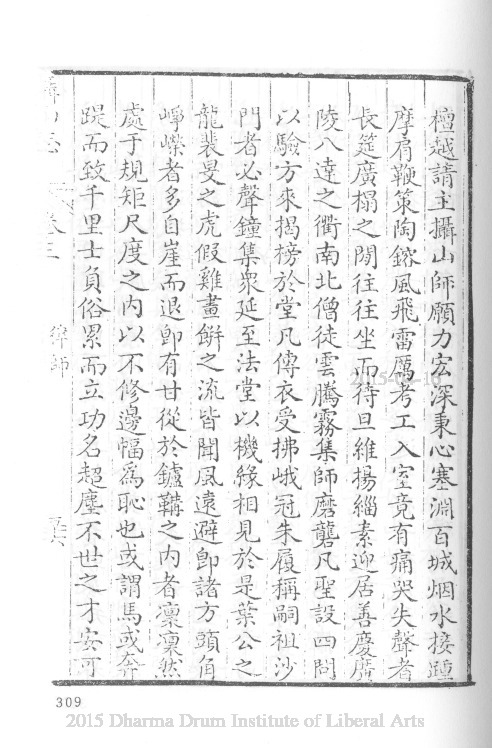 檀越請主攝山師願力宏深秉心塞淵百城烟水接踵
摩肩鞭策陶鎔風飛雷厲考工入室竟有痛哭失聲者
長筵廣榻之間往往坐而待旦維揚緇素迎居善慶廣
陵八達之衢南北僧徒雲騰霧集師磨礱凡聖設四問
以驗方來揭榜於堂凡傳衣受拂峨冠朱履稱嗣祖沙
門者必聲鐘集衆延至法堂以機緣相見於是葉公之
龍裴旻之虎假雞畫餅之流皆聞風遠避卽諸方頭角
崢嶸者多自崖而退卽有甘從於鑪鞴之內者凜凜然
處于規矩尺度之內以不修邊幅為恥也或謂馬或奔
踶而致千里士負俗累而立功名超塵不世之才安可
卷三
律師
309
2015 Dharma Drum Institute of Liberal Arts